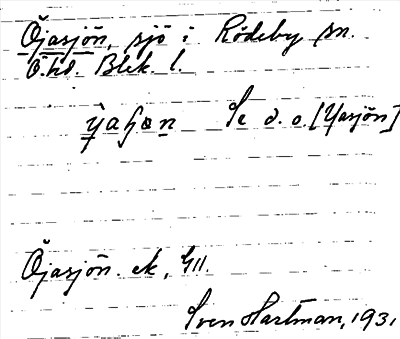 Öjasjön, sjö i Rödeby sn.
Ö. hd. Blek. l.
Se d. o. [Yasjön]
Öjasjön. ek,
Sven Hartman, 1931